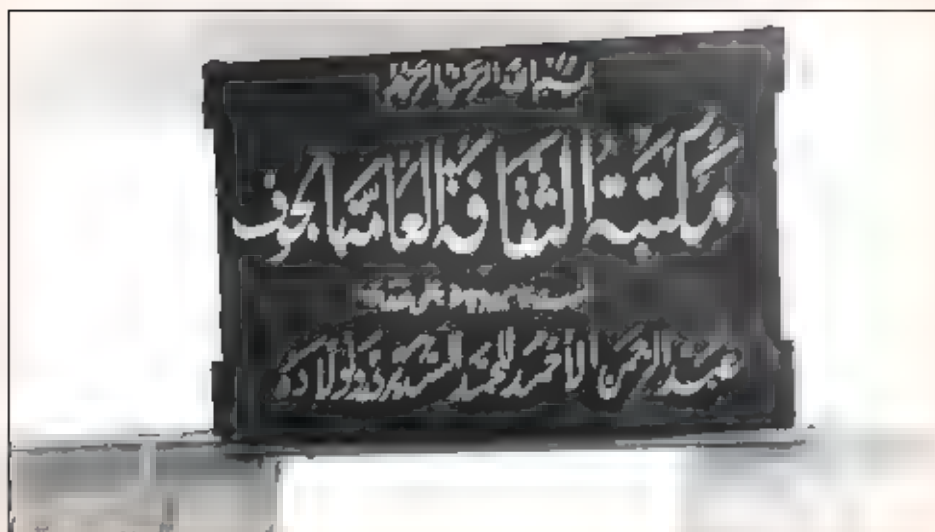 بسم الله الرحمن الرحيم
مكتبة الثقافة العامة بالجوف
عبد الرحمن الأحمد السديري وأولاده